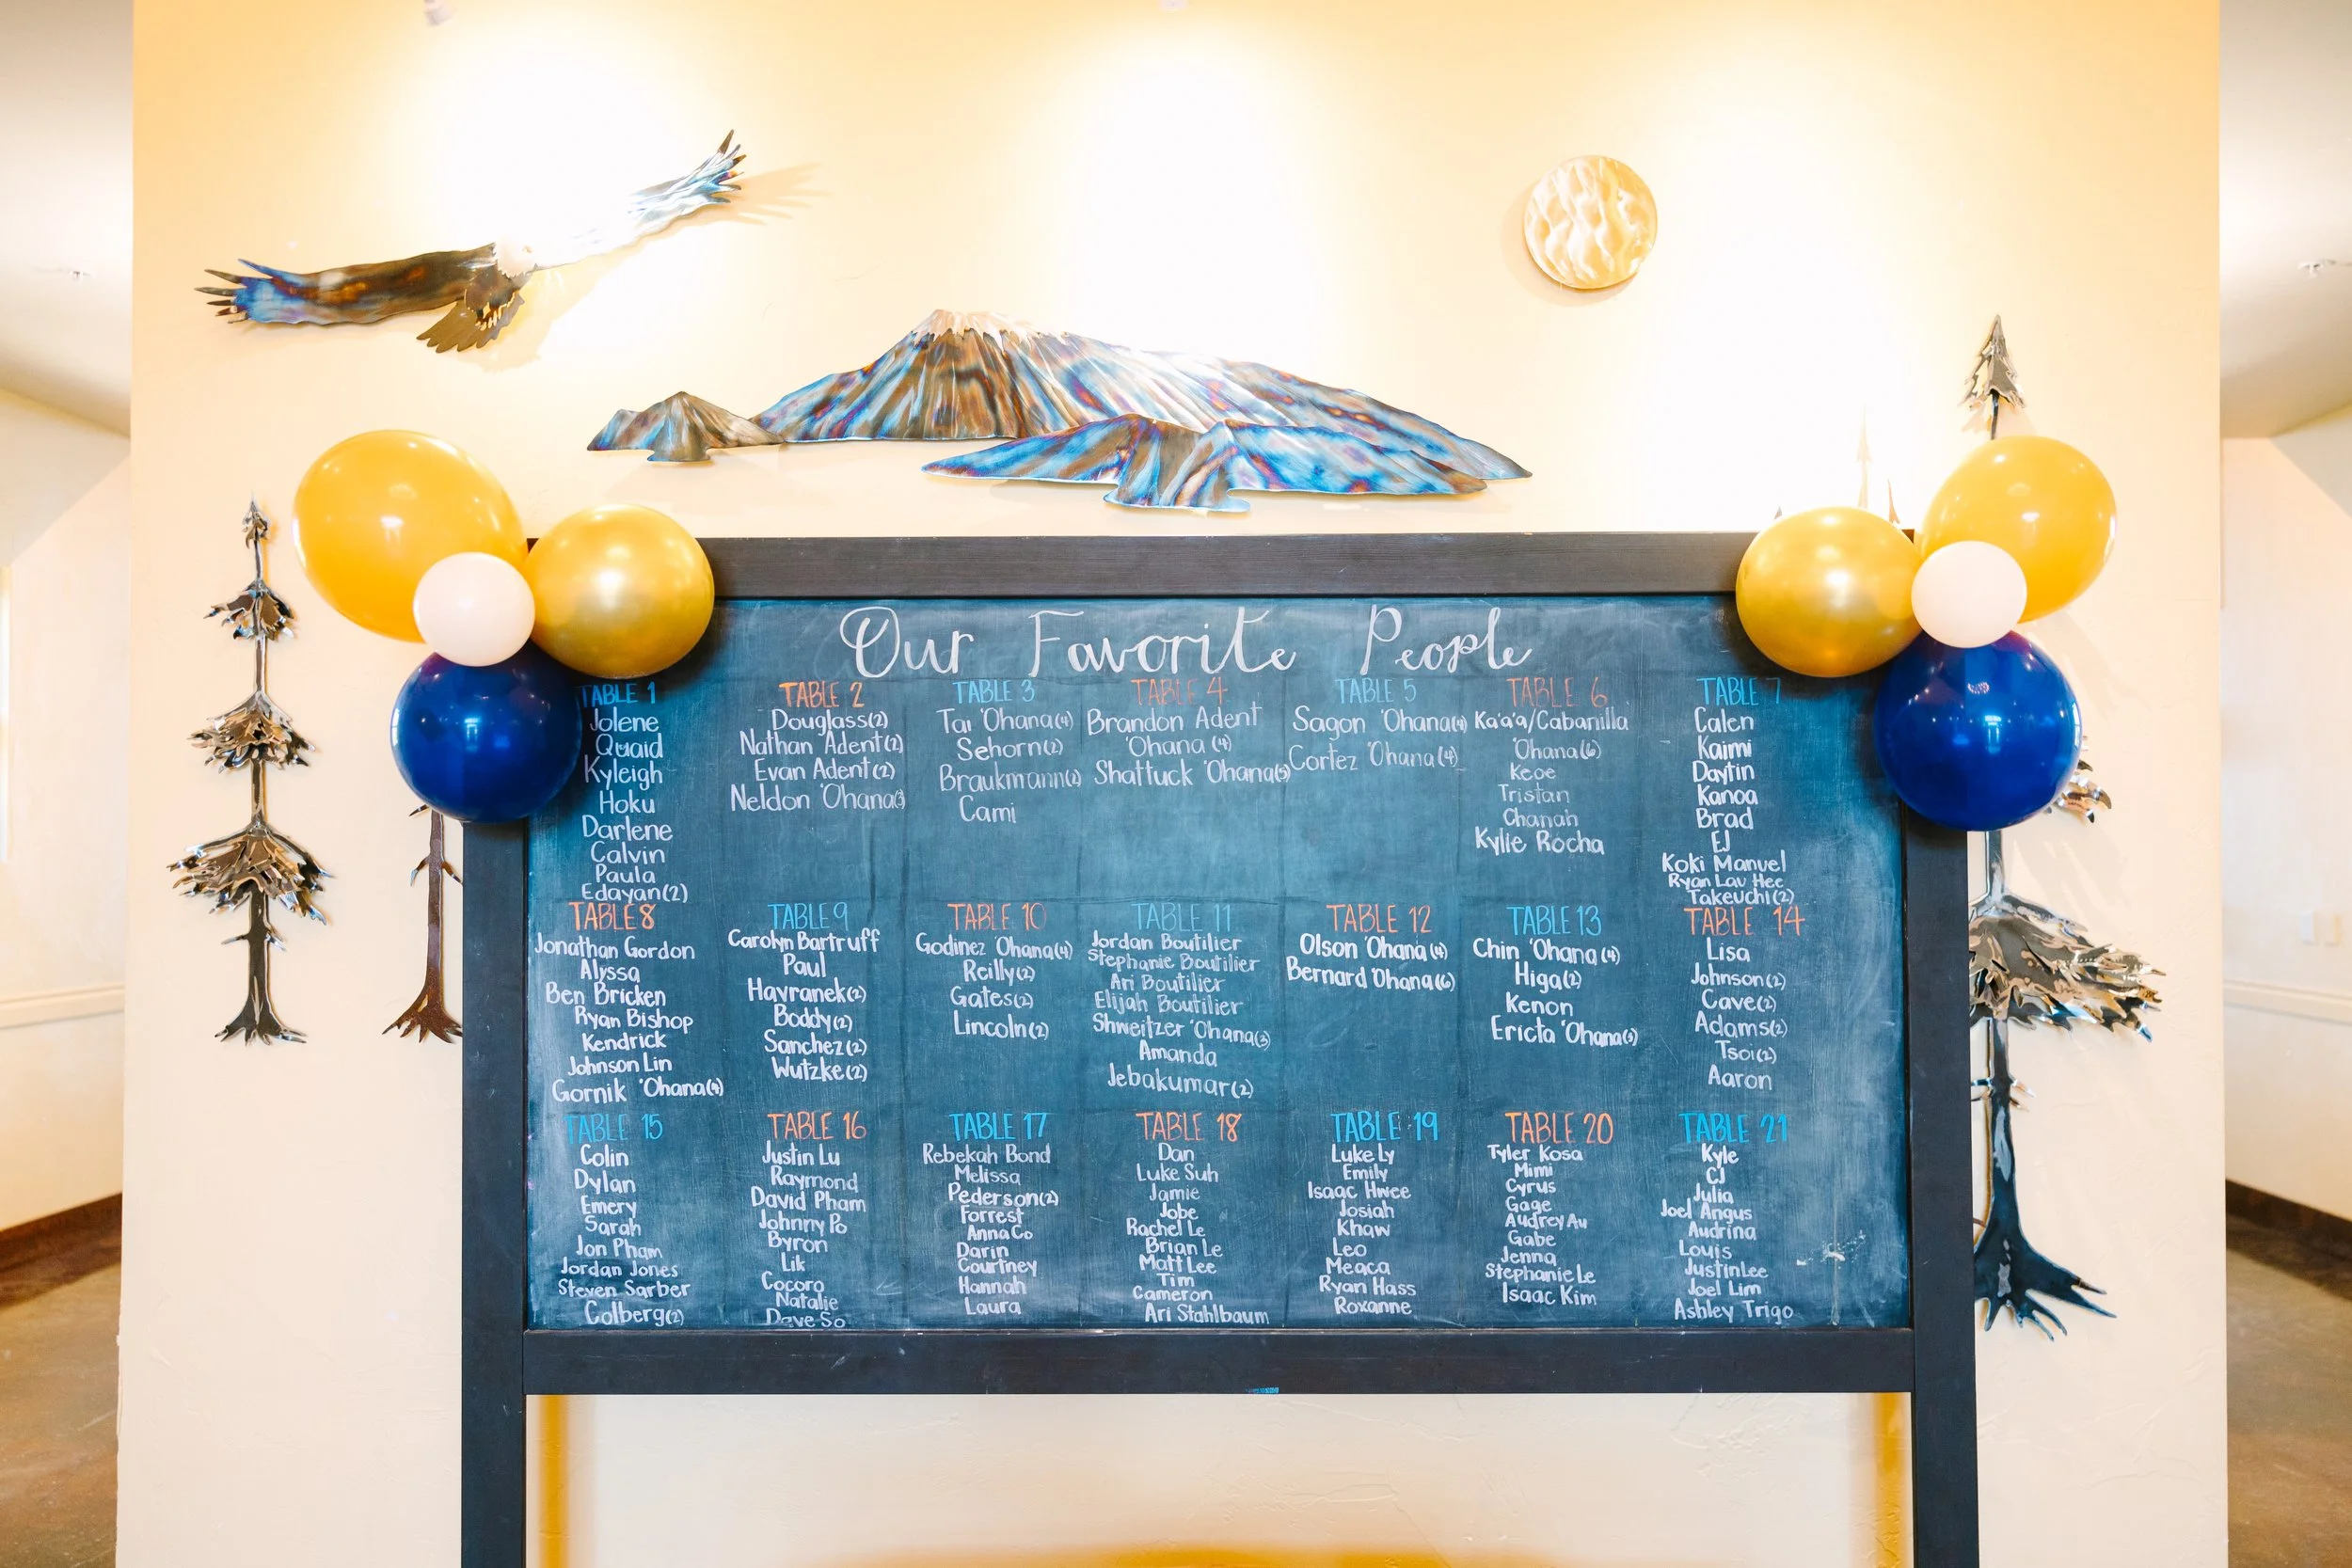 Our Favorite People
TABLE 1
Jolene
Quaid
Kyleigh
Hoku
Darlene
Calvin
Paula
Edayan(2)
TABLE 2
Douglass(2)
Nathan Adent(2)
Evan Adent(2)
Neldon 'Ohana(3)
TABLE 3
Tai 'Ohana(4)
Sehorn(2)
Braukmann(2)
Cami
TABLE 4
Brandon Adent
'Ohana (4)
Shattuck 'Ohana(5)
TABLE 5
Sagon 'Ohana(4)
Cortez 'Ohana(4)
TABLE 6
Ka'a'a/Cabanilla
'Ohana(6)
Keoe
Tristan
Chanah
Kylie Rocha
TABLE 7
Calen
Kaimi
Daytin
Kanoa
Brad
EJ
Koki Manuel
Ryan Lau Hee
Takeuchi(2)
TABLE 8
Jonathan Gordon
Alyssa
Ben Bricken
Ryan Bishop
Kendrick
Johnson Lin
Gornik 'Ohana(4)
TABLE 9
Carolyn Bartruff
Paul
Havranek(2)
Boddy(2)
Sanchez(2)
Wutzke(2)
TABLE 10
Godinez 'Ohana(4)
Reilly(2)
Gates(2)
Lincoln(2)
TABLE 11
Jordan Boutilier
Stephanie Boutilier
Ari Boutilier
Elijah Boutilier
Shweitzer 'Ohana(3)
Amanda
Jebakumar(2)
TABLE 12
Olson 'Ohana (4)
Bernard 'Ohana(6)
TABLE 13
Chin 'Ohana (4)
Higa(2)
Kenon
Ericta 'Ohana(3)
TABLE 14
Lisa
Johnson(2)
Cave(2)
Adams(2)
Tsoi(2)
Aaron
TABLE 15
Colin
Dylan
Emery
Sarah
Jon Pham
Jordan Jones
Steven Sarber
Colberg(2)
TABLE 16
Justin Lu
Raymond
David Pham
Johnny Po
Byron
Lik
Cocoro
Natalie
Dave So
TABLE 17
Rebekah Bond
Melissa
Pederson(2)
Forrest
Anna Co
Darin
Courtney
Hannah
Laura
TABLE 18
Dan
Luke Suh
Jamie
Jobe
Rachel Le
Brian Le
Matt Lee
Tim
Cameron
Ari Stahlbaum
TABLE 19
Luke Ly
Emily
Isaac Hwee
Josiah
Khaw
Leo
Meaca
Ryan Hass
Roxanne
TABLE 20
Tyler Kosa
Mimi
Cyrus
Gage
Audrey Au
Gabe
Jenna
Stephanie Le
Isaac Kim
TABLE 21
Kyle
CJ
Julia
Joel Angus
Audrina
Louis
Justin Lee
Joel Lim
Ashley Trigo